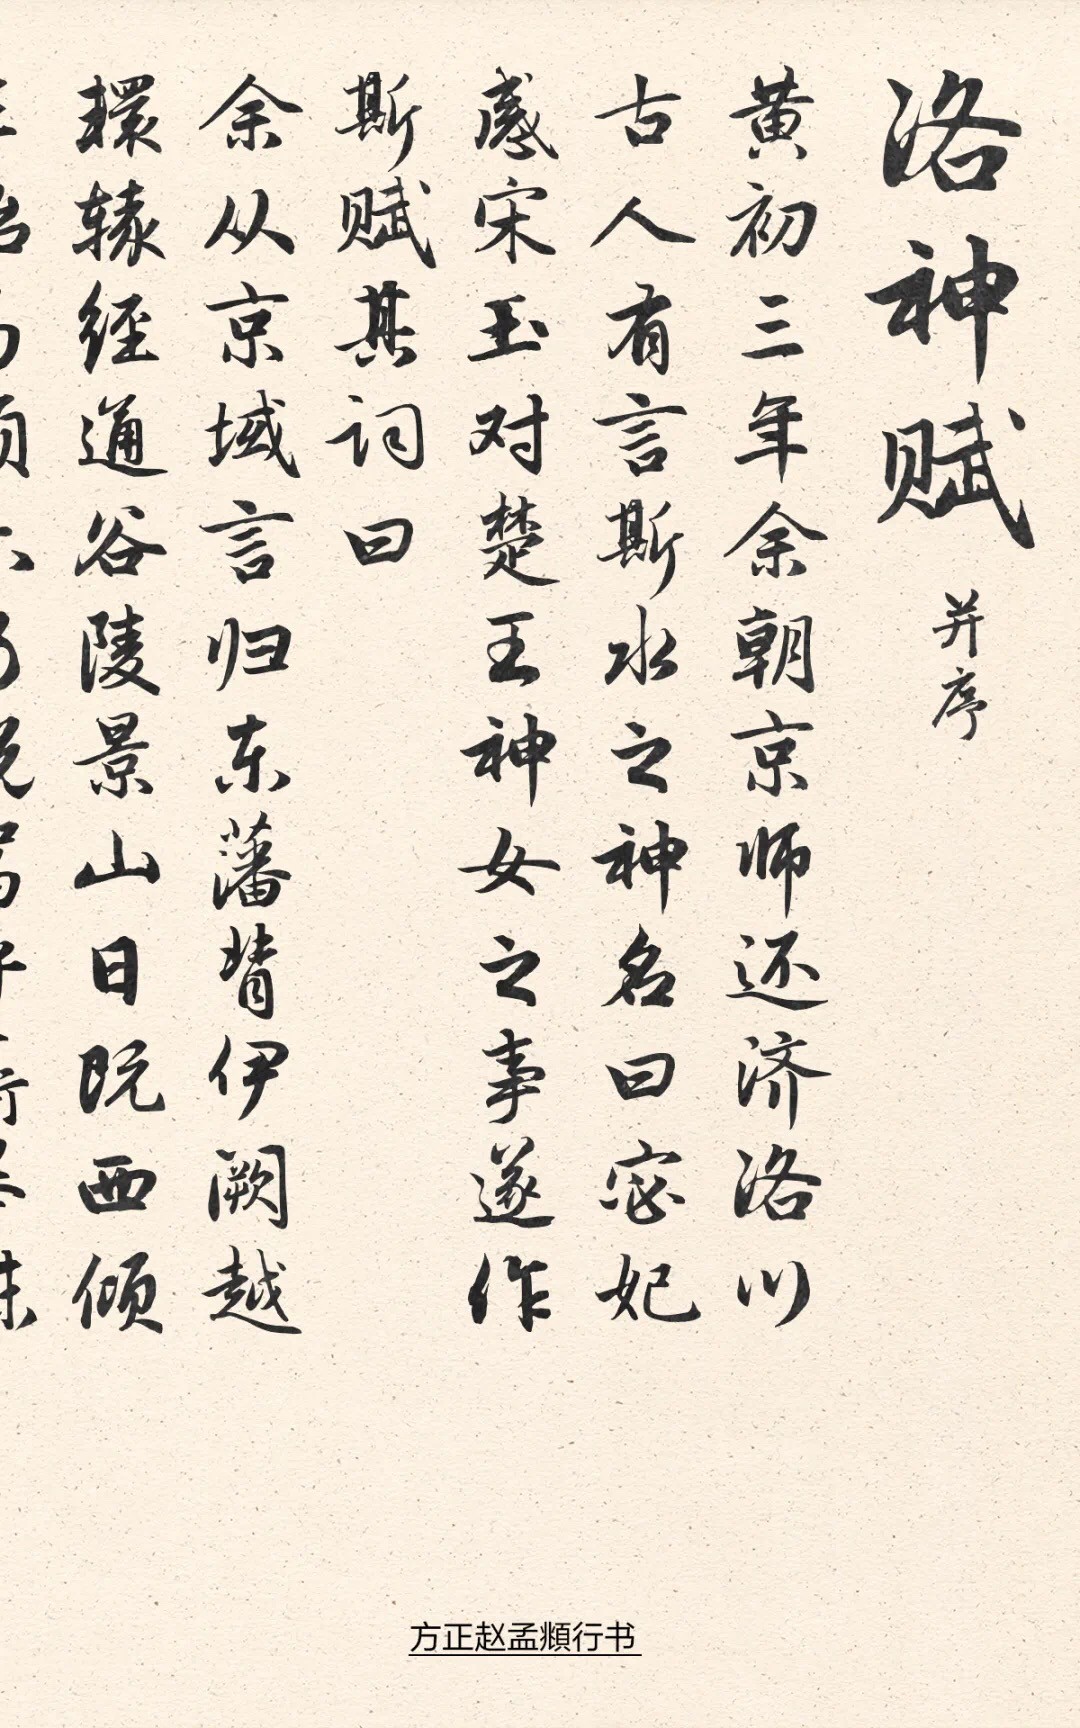 洛神赋 并序
黄初三年余朝京师还济洛川
古人有言斯水之神名曰宓妃
感宋玉对楚王神女之事遂作
斯赋其词曰
余从京域言归东藩背伊阙越
轘辕经通谷陵景山日既西倾
方正赵孟頫行书